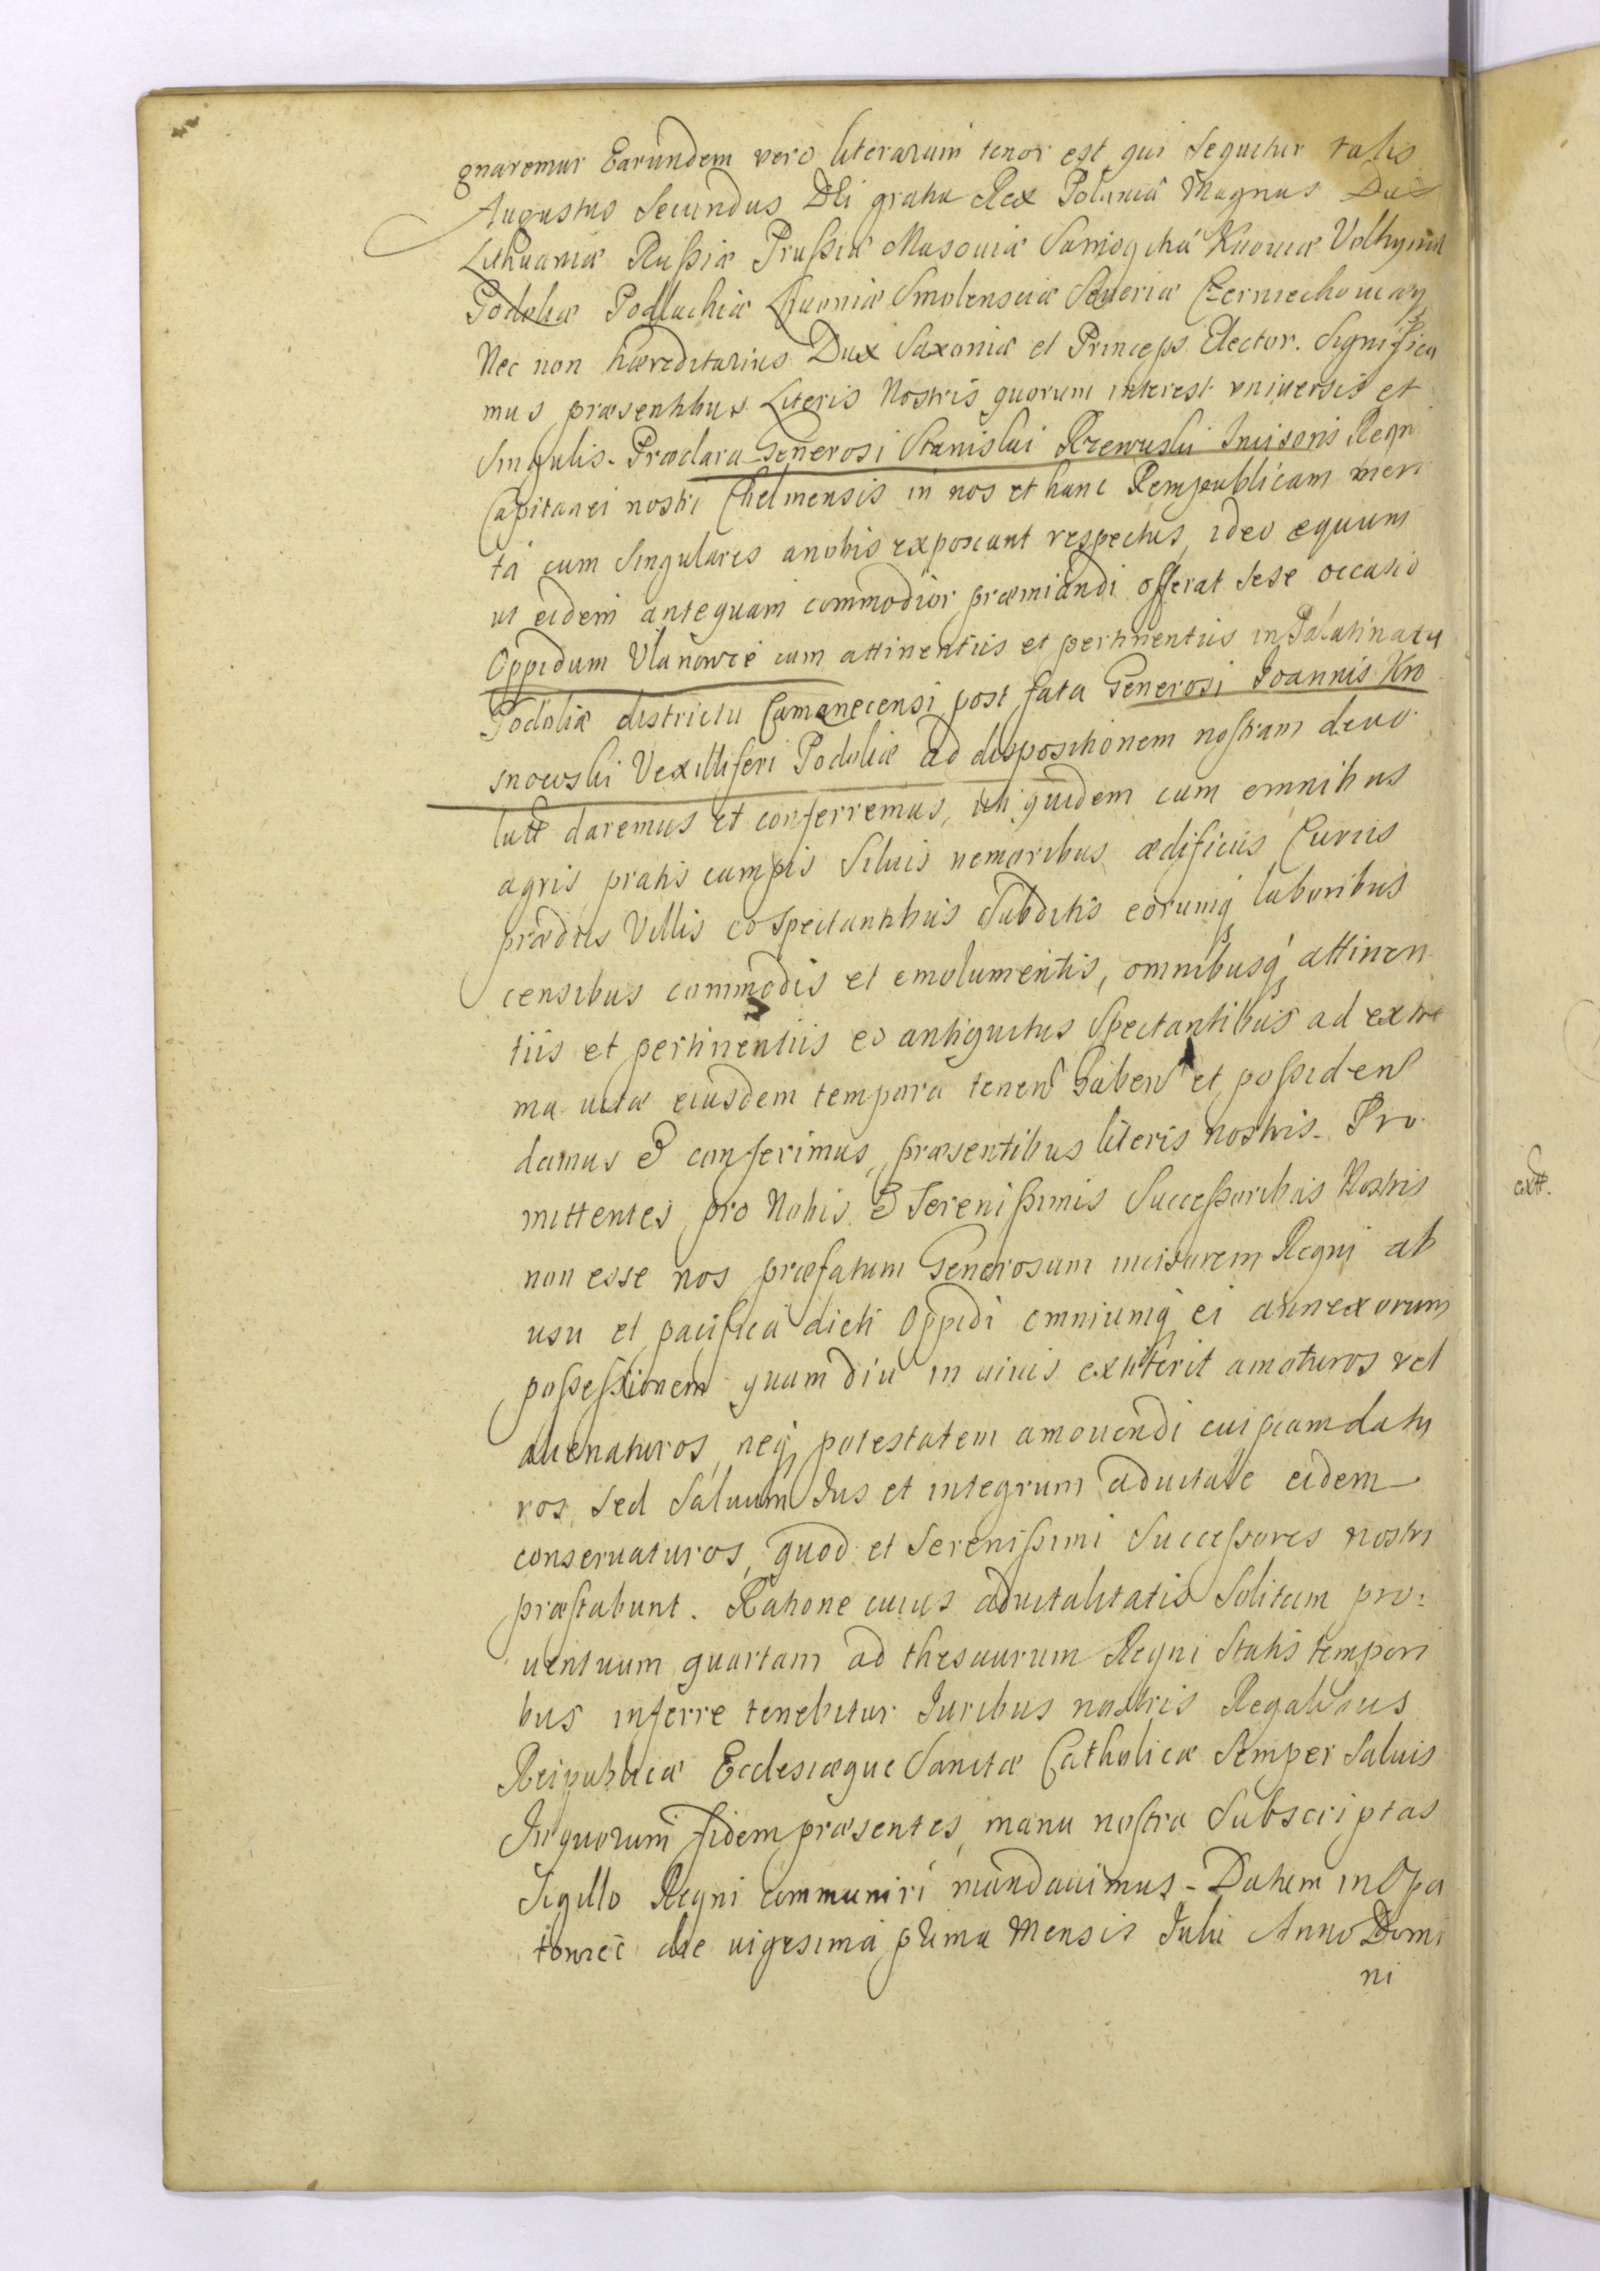 gnaremur Earundem vero literarum tenor est qui sequitur talis
Augustus Secundus DEi gratia Rex Poloniæ Magnus Dux
Lithuaniæ Russiæ Prussiæ Masouiæ Samogitiæ Kiiouiæ Volhyniæ
Podoliæ Podlachiæ Liuoniæ Smolensciæ Seueriæ Czerniechouiæq
Nec non hæreditarius Dux Saxoniæ et Princeps Elector. Significa
mus præsentibus Literis Nostris quorum interest vniuersis et
Singulis. Præclara Generosi Stanislai Rzewuski Incisoris Regni
Capitanei nostri Chelmensis in nos et hanc Rempublicam meri
ta cum Singulares anobis exposcant respectus, ideo equum
ut eidem antequam commodior præmiandi offerat sese occasio
Oppidum Vlanowce cum attinentiis et pertinentiis in Palatinatu
Podoliæ districtu Camenecensi post fata Generosi Joannis Kro
snowski Vexilliferi Podoliæ ad dispositionem nostram deuo
lutt daremus et conferremus, uti quidem cum omnibus
agris pratis campis Siluis nemoribus ædificiis Curiis
prædiis Villis eo Spectantibus Subditis eorumq laboribus
censibus commodis et emolumentis, omnibusq attinen
tiis et pertinentiis eo antiquitus Spectantibus ad extre
ma uitæ eiusdem tempora tenen haben et possiden
damus & conferimus, præsentibus literis nostris. Pro
mittentes pro Nobis & Serenissimis Successoribus Nostris
non esse nos præfatum Generosum incisorem Regni ab
usu et pacifica dicti Oppidi omniumq ei annexorum
possessionem quamdiu in uiuis extiterit amoturos vel
alienaturos, neq potestatem amouendi cuipiam datu
ros, sed Saluum Jus et integrum aduitale eidem
conseruaturos, quod et Serenissimi Successores nostri
præstabunt. Ratione cuius aduitalitatis Solitam pro:
uentuum quartam ad thesaurum Regni Statis tempori
bus inferre tenebitur Juribus nostris Regalibus
Reipublicæ Ecclesiæque Sanctæ Catholicæ Semper Saluis
Inquorum fidem præsentes, manu nostra Subscriptas
Sigillo Regni communiri mandauimus. Datum in Opa
towiec die uigesima prima Mensis Julii Anno Domi
ni
extt.